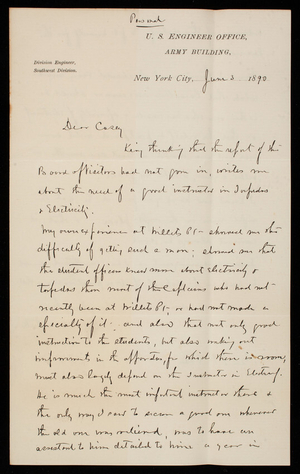 Personal
U. S. ENGINEER OFFICE,
ARMY BUILDING,
Division Engineer,
Southwest Division.
New York City, June 2 1890
Dear Casey
King thinking that the report of the
Board of Visitors had not gone in, writes me
about the need of a good instructor in Torpedoes
& Electricity.
My own experience at Willets Pt - showed me the
difficulty of getting such a man; showed me that
the student officers knew more about Electricity &
torpedoes than most of the Captains who had not
recently been at Willets Pt - or had not made a
specialty of it; and also that not only good
instruction to the students, but also making out
improvements in the apparatus, for which there is room,
must also largely depend on the Instructor in Electry.
He is much the most important instructor there &
the only way I saw to secure a good one whenever
the old one was relieved, was to have an
assistant to him detailed to have a year in